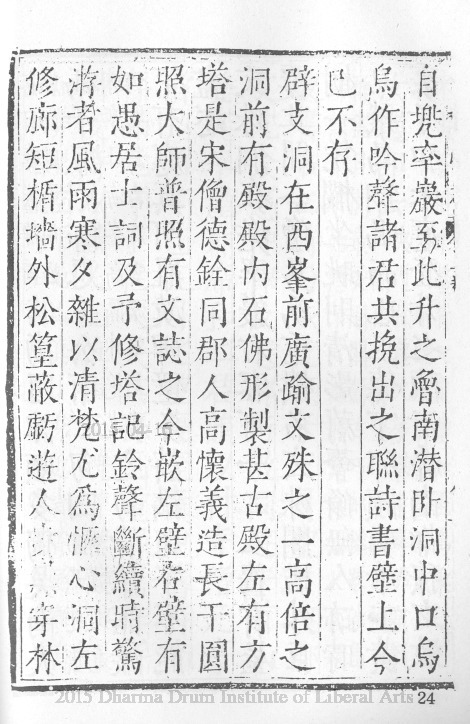 自兠率巖至此升之魯南潛卧洞中口烏
烏作吟聲諸君共挽出之聯詩書壁上今
已不存
辟支洞在西峯前廣踰文殊之一高倍之
洞前有殿殿内石佛形製甚古殿左有方
塔是宋僧德銓同郡人高懷義造長干圓
照大師普照有文誌之今嵌左壁右壁有
如愚居士詞及予修塔記鈴聲斷續時驚
游者風雨寒夕雜以清梵尤爲愜心洞左
修廊短楯墻外松篁蔽虧遊人穿林
2015 Dharma Drum Institute of Liberal Arts 24